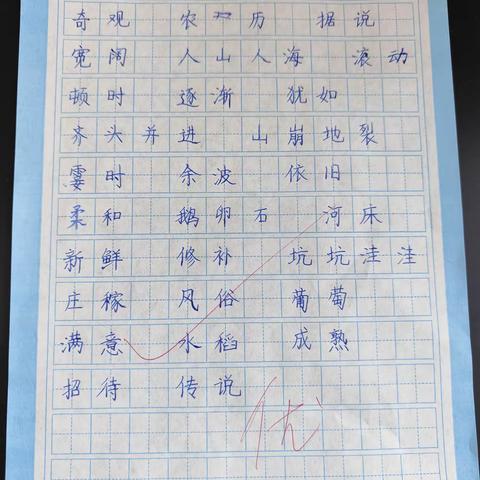 奇观 农历 据说
宽阔 人山人海 滚动
顿时 逐渐 犹如
齐头并进 山崩地裂
霎时 余波 依旧
柔和 鹅卵石 河床
新鲜 修补 坑坑洼洼
庄稼 风俗 葡萄
满意 水稻 成熟
招待 传说
优